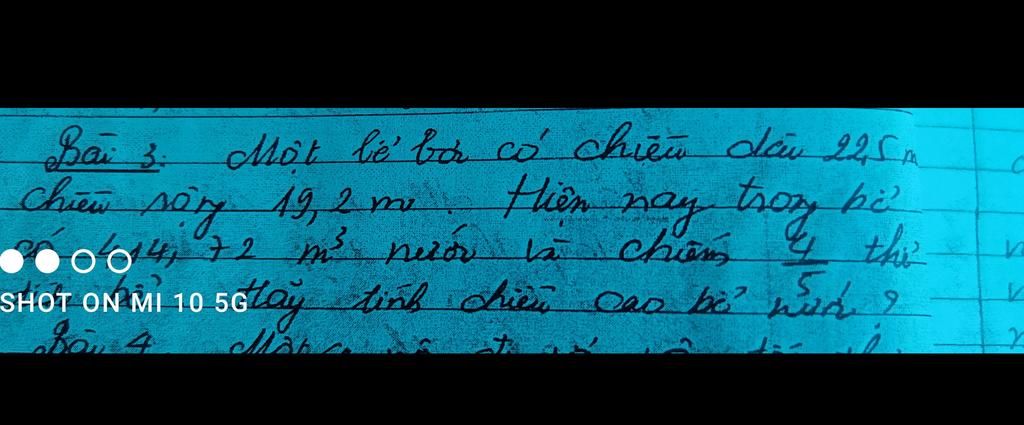 Bài 3: Một bể bơi có chiều dài 22,5 m
chiều rộng 19,2 m. Hiện nay trong bể
có 414,72 m³ nước và chiếm 4/5 thể
SHOT ON MI 10 5G
tích bể. Hãy tính chiều cao bể nước?
Bài 4. Một